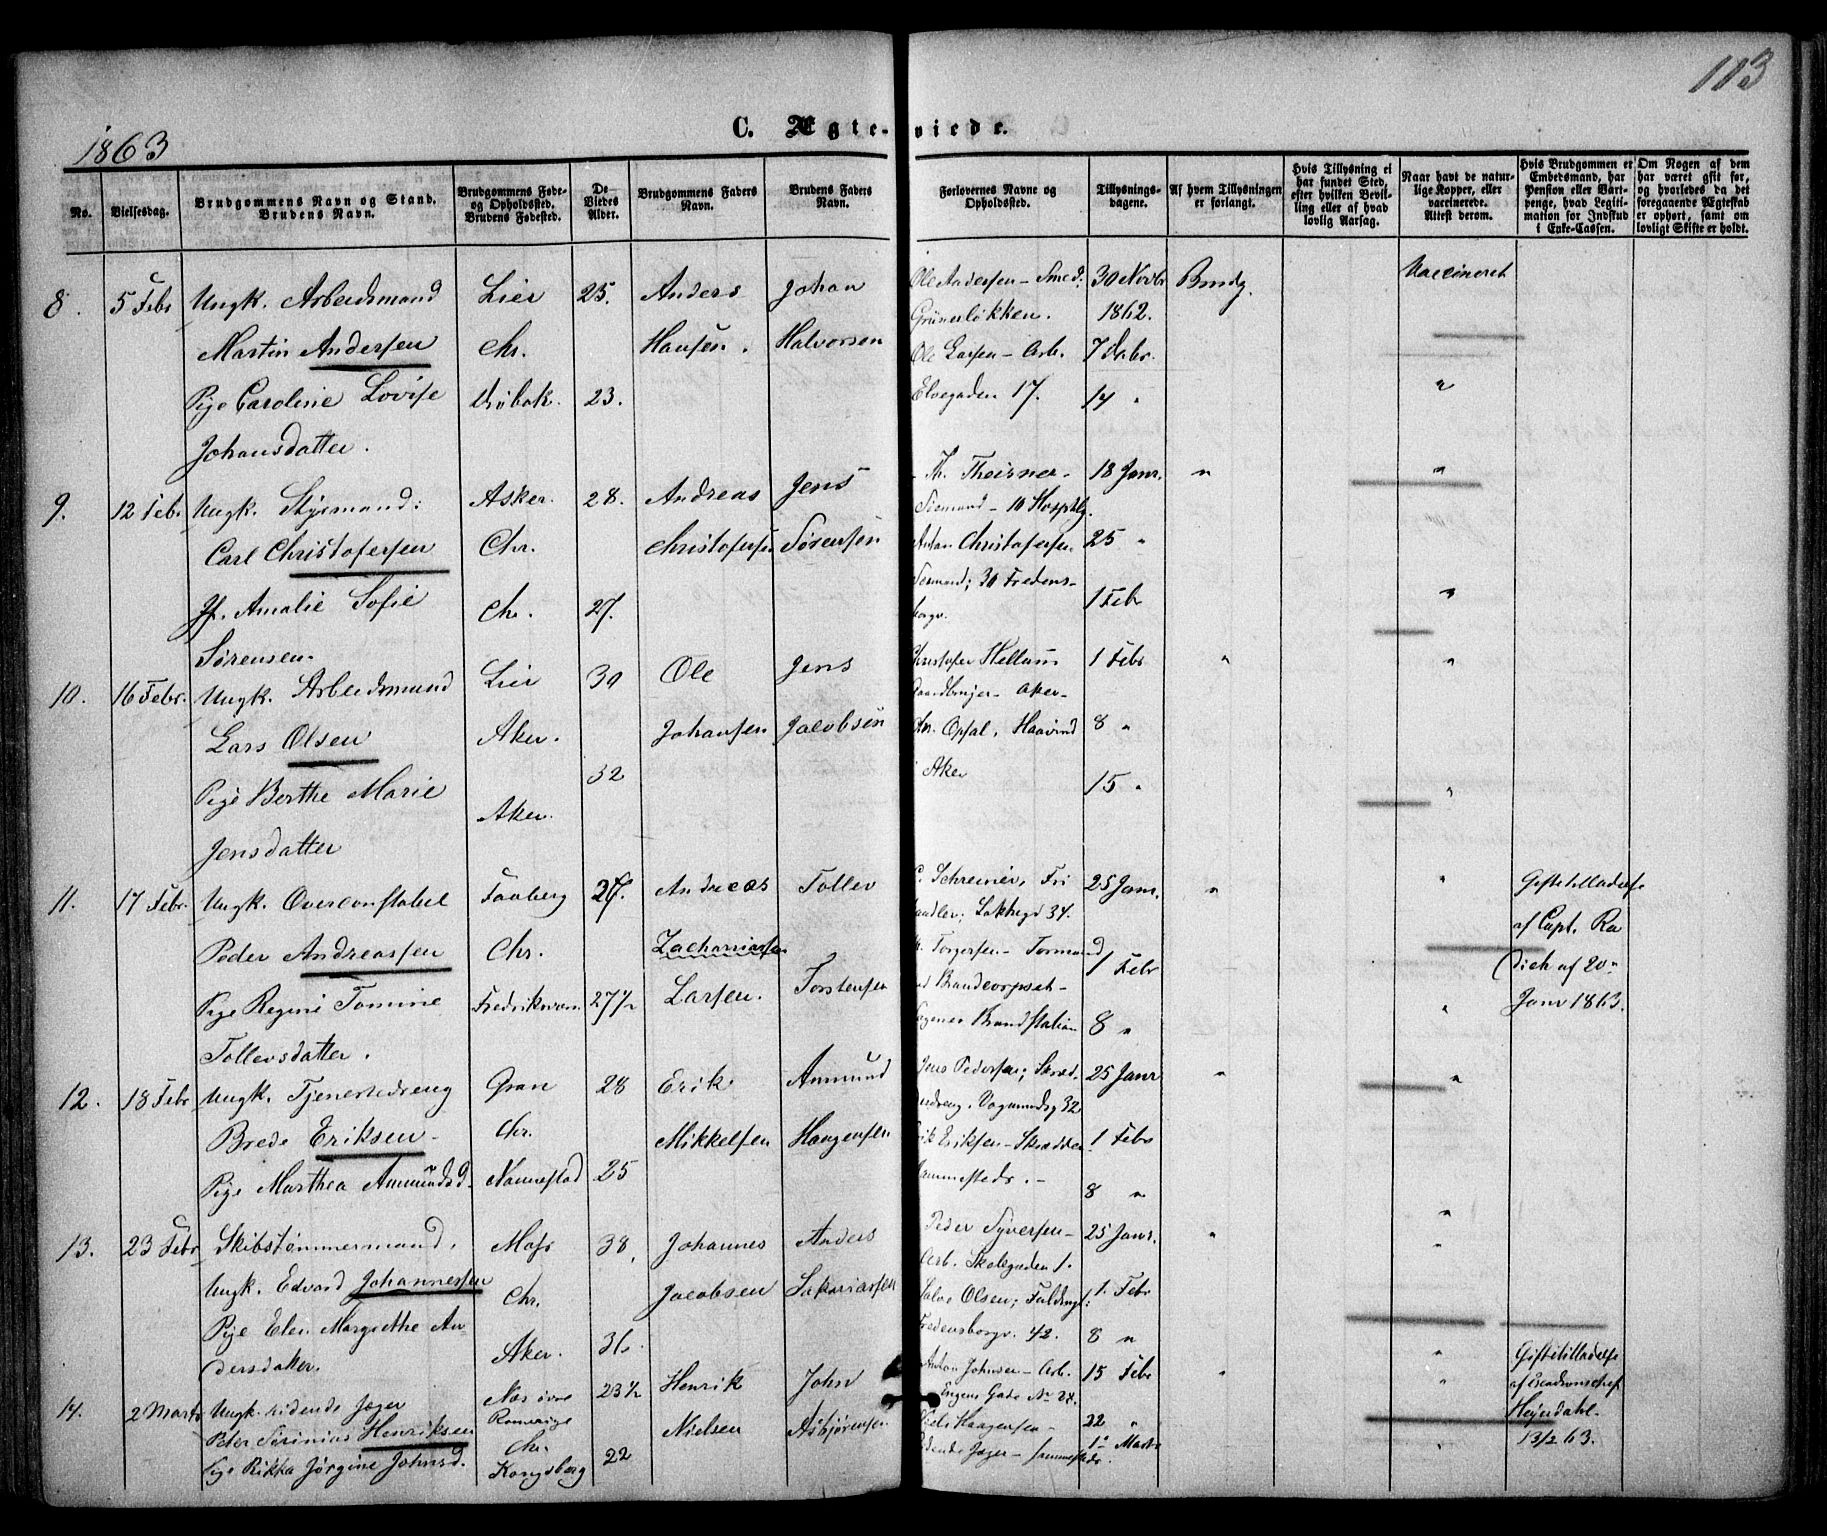 113
1863
C. Ægte-viede.
No.
Vielsesdag.
Brudgommens Navn og Stand.
Brudens Navn.
Brudgommens Føde- og Opholdssted.
Brudens Fødested.
De Viedes Alder.
Brudgommens Faders Navn.
Brudens Faders Navn.
Forlovernes Navne og Opholdssted.
Tillysnings-dagene.
Af hvem Tillysningen er forlangt.
Hvis Tillysning ei har fundet Sted, efter hvilken Bevilling eller af hvad lovlig Aarsag.
Naar havt de naturlige Kopper, eller vaccinerede. Attest derom.
Hvis Brudgommen er Embedsmand, har Pension eller Vartpenge, hvad Legitimation for Indskud i Enke-Cassen.
Om Nogen af dem har været gift før, og hvorledes da det foregaaende Ægteskab er ophørt, samt om lovligt Skifte er holdt.
8. 5 Febr Ungk. Arbeidsmand Lier 25. Anders Johan Ole Andersen - Smed. 30 Novbr Brudg. Vaccineret
Martin Andersen Chr. Hansen. Halvorsen Grünerløkken. 1862.
Ole Larsen - Arb. 7 Debr.
Pige Caroline Lovise Drøbak. 23. Elvegaden 17. 14 " "
Johansdatter.
9. 12 Febr. Ungk. Styrmand: Asker. 28. Andreas Jens Th. Theisner - 18 Janr. " "
Carl Christofersen Chr. Christofersen Sørensen Sømand - 10 Hosptlg.
Anton Christofersen 25 "
Jf. Amalie Sofie Chr. 27. Sømand; 30 Fredens- 1 Febr "
borgv.
Sørensen.
10. 16 Febr. Ungk. Arbeidsmand Lier 30 Ole Jens Christofer Hellum 1 Febr " "
Gaardbruger - Aker -
Lars Olsen Aker. Johansen Jacobsen Chr. Opsal, Haavind 8 "
Pige Berthe Marie Aker. 32 i Aker 15 " "
Jensdatter
11. 17 Febr. Ungk. Overconstabel Faaberg 27. Andreas Tollev Schreiner, Fri 25 Janr. " " Giftetilladelse
handler; Lakkegd 34. af Capt. Ra
Peder Andreassen Chr. Zachariassen Torgersen - Formand 1 Febr dich af 20n
Pige Regine Tomine Fredriksværn 27½ Larsen. Torstensen ved Brandcorpset - " Janr 1863.
Tollevsdatter. Brandstation 8 "
12. 18 Febr Ungk. Tjenestedreng Gran 28 Erik Anmund Jens Pedersen; Skræd- 25 Janr " "
derdreng. Vognmdsg 32
Brede Eriksen - Chr. Mikkelsen Haagensen Erik Eriksen - Skrædder 1 Febr
Pige Marthea Anmundsd. Nannestad 25 sammesteds. - 8 " "
13. 23 Febr Skibstømmermand, Moss 38, Johannes Anders Peder Syversen - 25 Janr. " "
Arb. Skolegaden 1.
Ungk. Edvard Johannessen Chr. Jacobsen Sakariassen Salve Olsen; Fuldmgt: 1. Febr
Pige Elen Margrethe An Aker. 36. Fredensborgv. 42. 8 " "
dersdatter.
14. 2 Marts Ungk. ridende Jæger Næs øvre 23½ Henrik John Anton Johnsen - Arb. 15 Febr " " Giftetilladelse
Engens Gade No 28. af Escadronschef
Peter Sørinius Henriksen Romerige Nielsen Asbjørnsen Niels Haagensen - 22 " Heyerdahl -
Chr. ridende Jæger - sammesteds. 1n Marts " 13/2 63.
Pige Rikka Jørgine Johnsd. Kongsberg 22